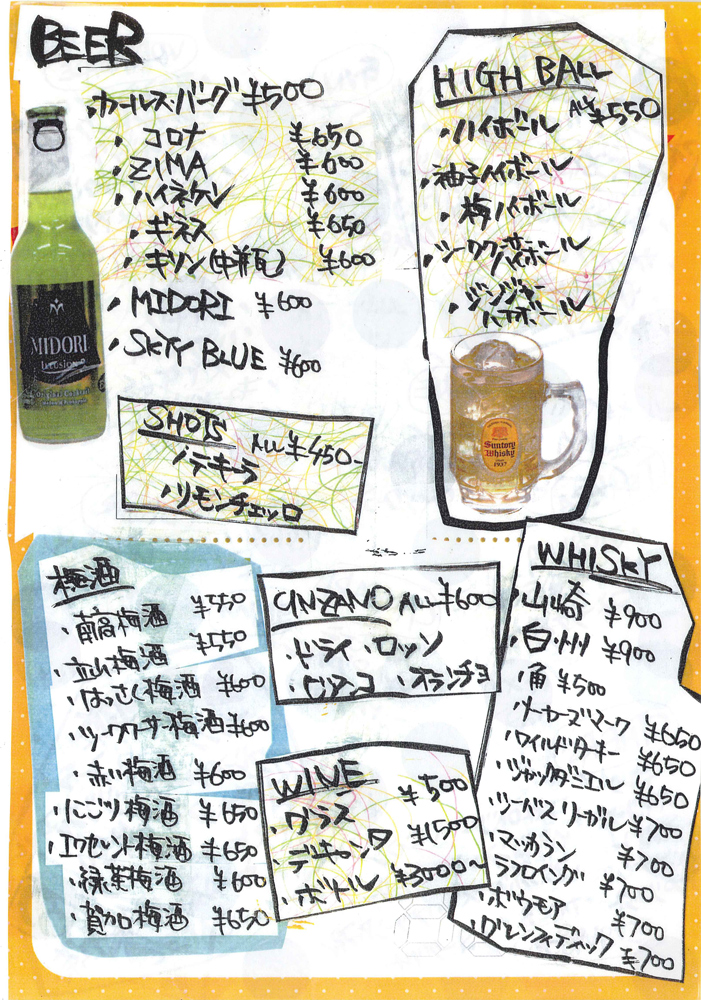 BEER
・カールスバーグ ¥500
・コロナ ¥650
・ZIMA ¥600
・ハイネケン ¥600
・ギネス ¥650
・キリン(中瓶) ¥600
・MIDORI ¥600
・SKYY BLUE ¥600
MIDORI
HIGH BALL
All ¥550
・ハイボール
・柚子ハイボール
・梅ハイボール
・シークワーサーハイボール
・ジンジャー
ハイボール
Suntory
Whisky
1937
SHOTS ALL ¥450-
・テキーラ
・リモンチェッロ
梅酒
・南高梅酒 ¥550
・立山梅酒 ¥550
・はっさく梅酒 ¥600
・シークワーサー梅酒 ¥600
・赤い梅酒 ¥600
・にごり梅酒 ¥650
・エクセレント梅酒 ¥650
・緑茶梅酒 ¥600
・賀加梅酒 ¥650
CINZANO ALL ¥600
・ドライ ・ロッソ
・ビアンコ ・オランチョ
WINE
・グラス ¥500
・デキャンタ ¥1500
・ボトル ¥3000〜
WHISKY
・山崎 ¥900
・白州 ¥900
・角 ¥500
・メーカーズマーク ¥650
・ワイルドターキー ¥650
・ジャックダニエル ¥650
・シーバスリーガル ¥700
・マッカラン ¥700
・ラフロイング ¥700
・ボウモア ¥700
・グレンフィディック ¥700